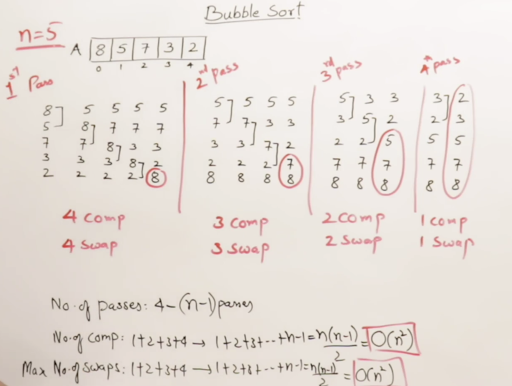 Bubble Sort
n=5
A 8 5 7 3 2
0 1 2 3 4
1st Pass
8 5 5 5 5
5 8 7 7 7
7 7 8 3 3
3 3 3 8 2
2 2 2 2 8
4 Comp
4 Swap
2nd pass
5 5 5 5
7 7 3 3
3 3 7 2
2 2 2 7
8 8 8 8
3 Comp
3 Swap
3rd pass
5 3 3
3 5 2
2 2 5
7 7 7
8 8 8
2 Comp
2 Swap
4th pass
3 2
2 3
5 5
7 7
8 8
1 Comp
1 Swap
No. of passes: 4 – (n-1) passes
No. of comp: 1+2+3+4 → 1+2+3+--+n-1 = n(n-1)/2 = O(n²)
Max No. of swaps: 1+2+3+4 → 1+2+3+--+n-1 = n(n-1)/2 = O(n²)